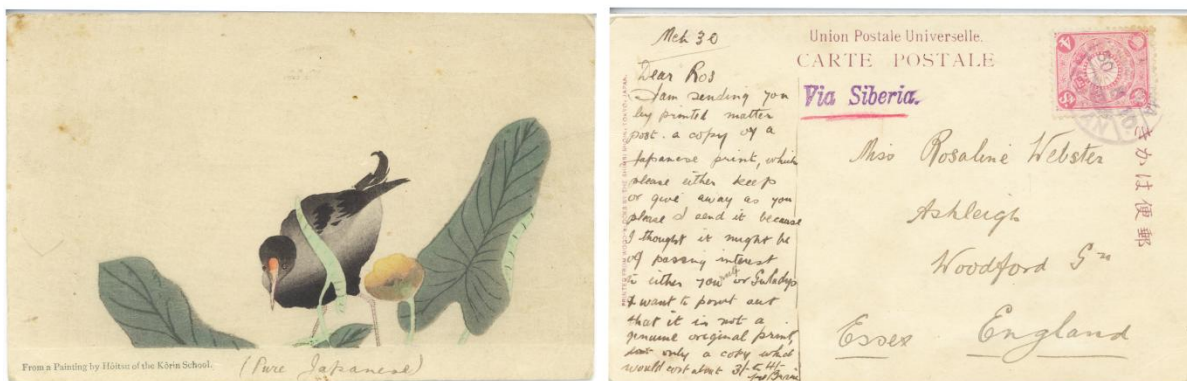 From a Painting by Hōitsu of the Kōrin School.
(Pure Japanese)
Mch 30
Dear Ros
I am sending you
by printed matter
post. a copy of a
Japanese print, which
please either keep
or give away as you
please I send it because
I thought it might be
of passing interest
to either yourself or Gwladys
I want to point out
that it is not a
genuine original print,
but only a copy what
would cost about 3/- & 4/-
Union Postale Universelle.
CARTE POSTALE
Via Siberia.
Miss Rosaline Webster
Ashleigh
Woodford Gn
Essex England
きかは便郵